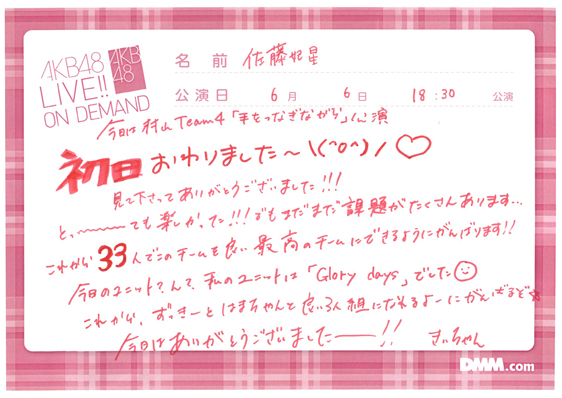 AKB48
LIVE!!
ON DEMAND
AKB
48
名 前 佐藤妃星
公演日 6月 6日 18:30 公演
今日は村山Team4「手をつなぎながら」公演
初日おわりました〜\(^o^)/♡
見て下さってありがとうございました!!!
とっ〜〜ても楽しかった!!!でもまだまだ課題がたくさんあります...
これから33人でこのチームを良い最高のチームにできるようにがんばります!!
今日のユニット?ん?私のユニットは「Glory days」でした☺
これから、ずっきーとはまちゃんと良い3人組になれるよーにがんばるぞ☆
今日はありがとうございましたーー!!
きぃちゃん
DMM.com